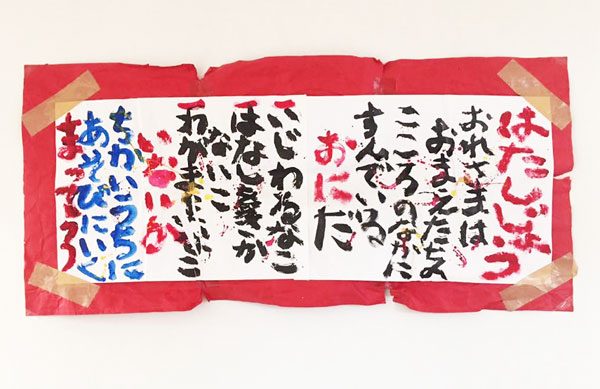 はたしじょう
おれさまは
おまえたちの
こころのなかに
すんでいる
おにだ
いじわるなこ
はなしをきか
ないこ
わがままなこ
いないか
ちかいうちに
あそびにいく
まってろ